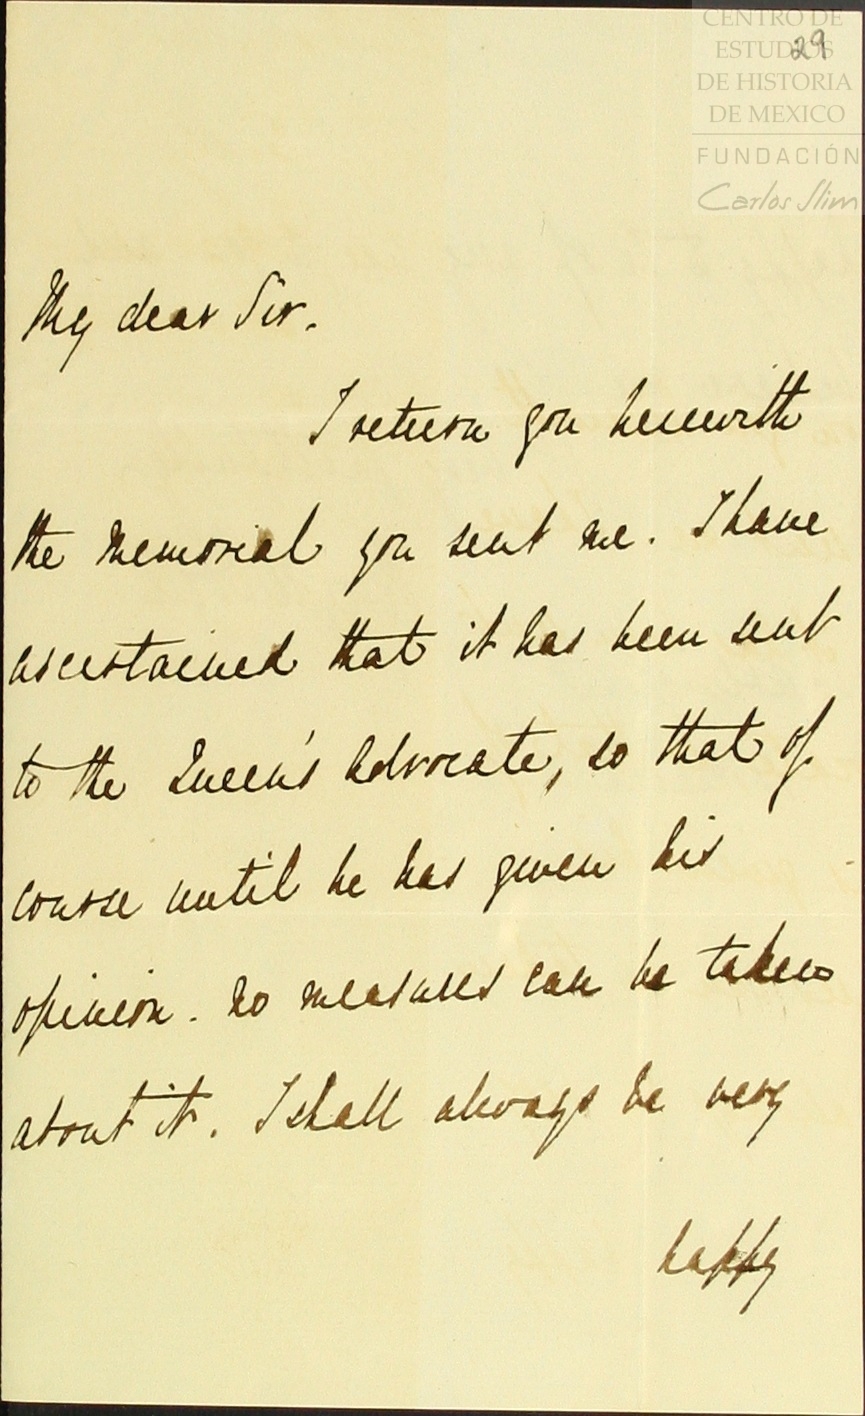 CENTRO DE
ESTUDIOS
29
DE HISTORIA
DE MEXICO
FUNDACIÓN
Carlos Slim
My dear Sir.
I return you herewith
the memorial you sent me. I have
ascertained that it has been sent
to the Queen's Advocate, so that of
course until he has given his
opinion. no measures can be taken
about it. I shall always be very
happy